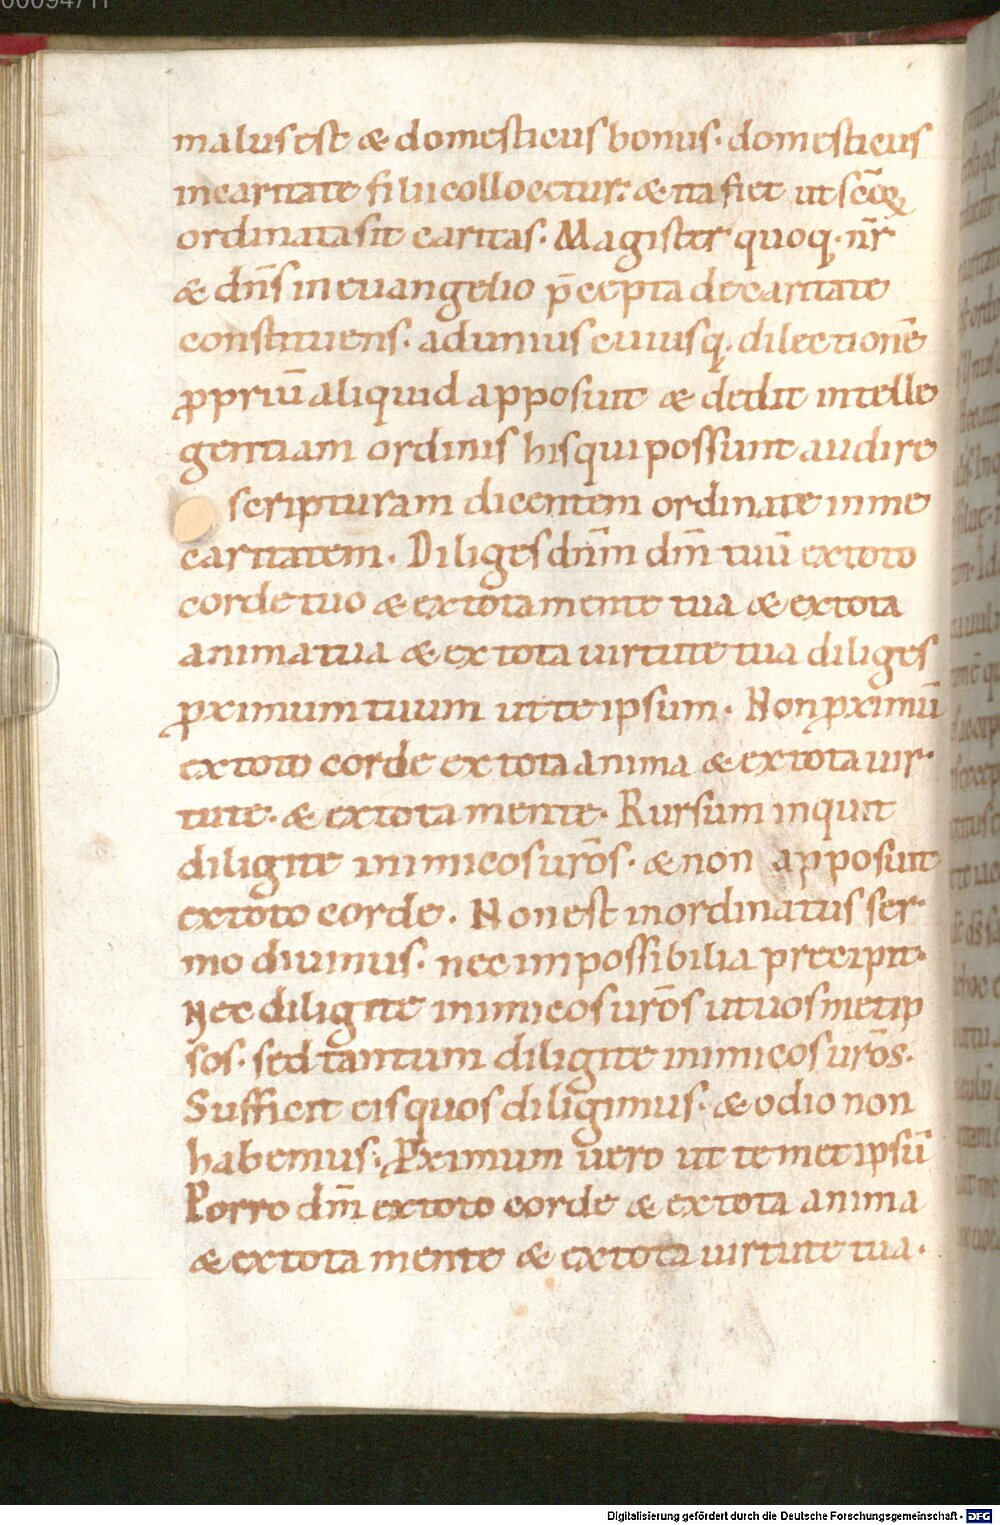 00094711
malus est & domesticus bonus· domesticus
in caritate filii collocetur: & ita fiet ut scōꝝ
ordinata sit caritas· Magister quoq· nr̄
& dn̄s in euangelio p̄cepta de caritate
constituens· ad unius cuiusq; dilectionē
ꝓpriū aliquid apposuit & dedit intelle
gentiam ordinis his qui possunt audire
scripturam dicentem ordinate in me
caritatem· Diliges dn̄m dm̄ tuū ex toto
corde tuo & ex tota mente tua & ex tota
anima tua & ex tota uirtute tua diliges
ꝓximum tuum ut te ipsum· Non ꝓximū
ex toto corde ex tota anima & ex tota uir·
tute· & ex tota mente· Rursum inquit
diligite inimicos urōs· & non apposuit
ex toto corde· Non est inordinatus ser·
mo diuinus· nec impossibilia precipit·
Nec diligite inimicos urōs ut uos metip
sos· sed tantum diligite inimicos urōs·
Sufficit eis quos diligimus· & odio non
habemus; Ꝓximum uero ut temet ipsū
Porro dm̄ ex toto corde & ex tota anima
& ex tota mente & ex tota uirtute tua·
Digitalisierung gefördert durch die Deutsche Forschungsgemeinschaft - DFG